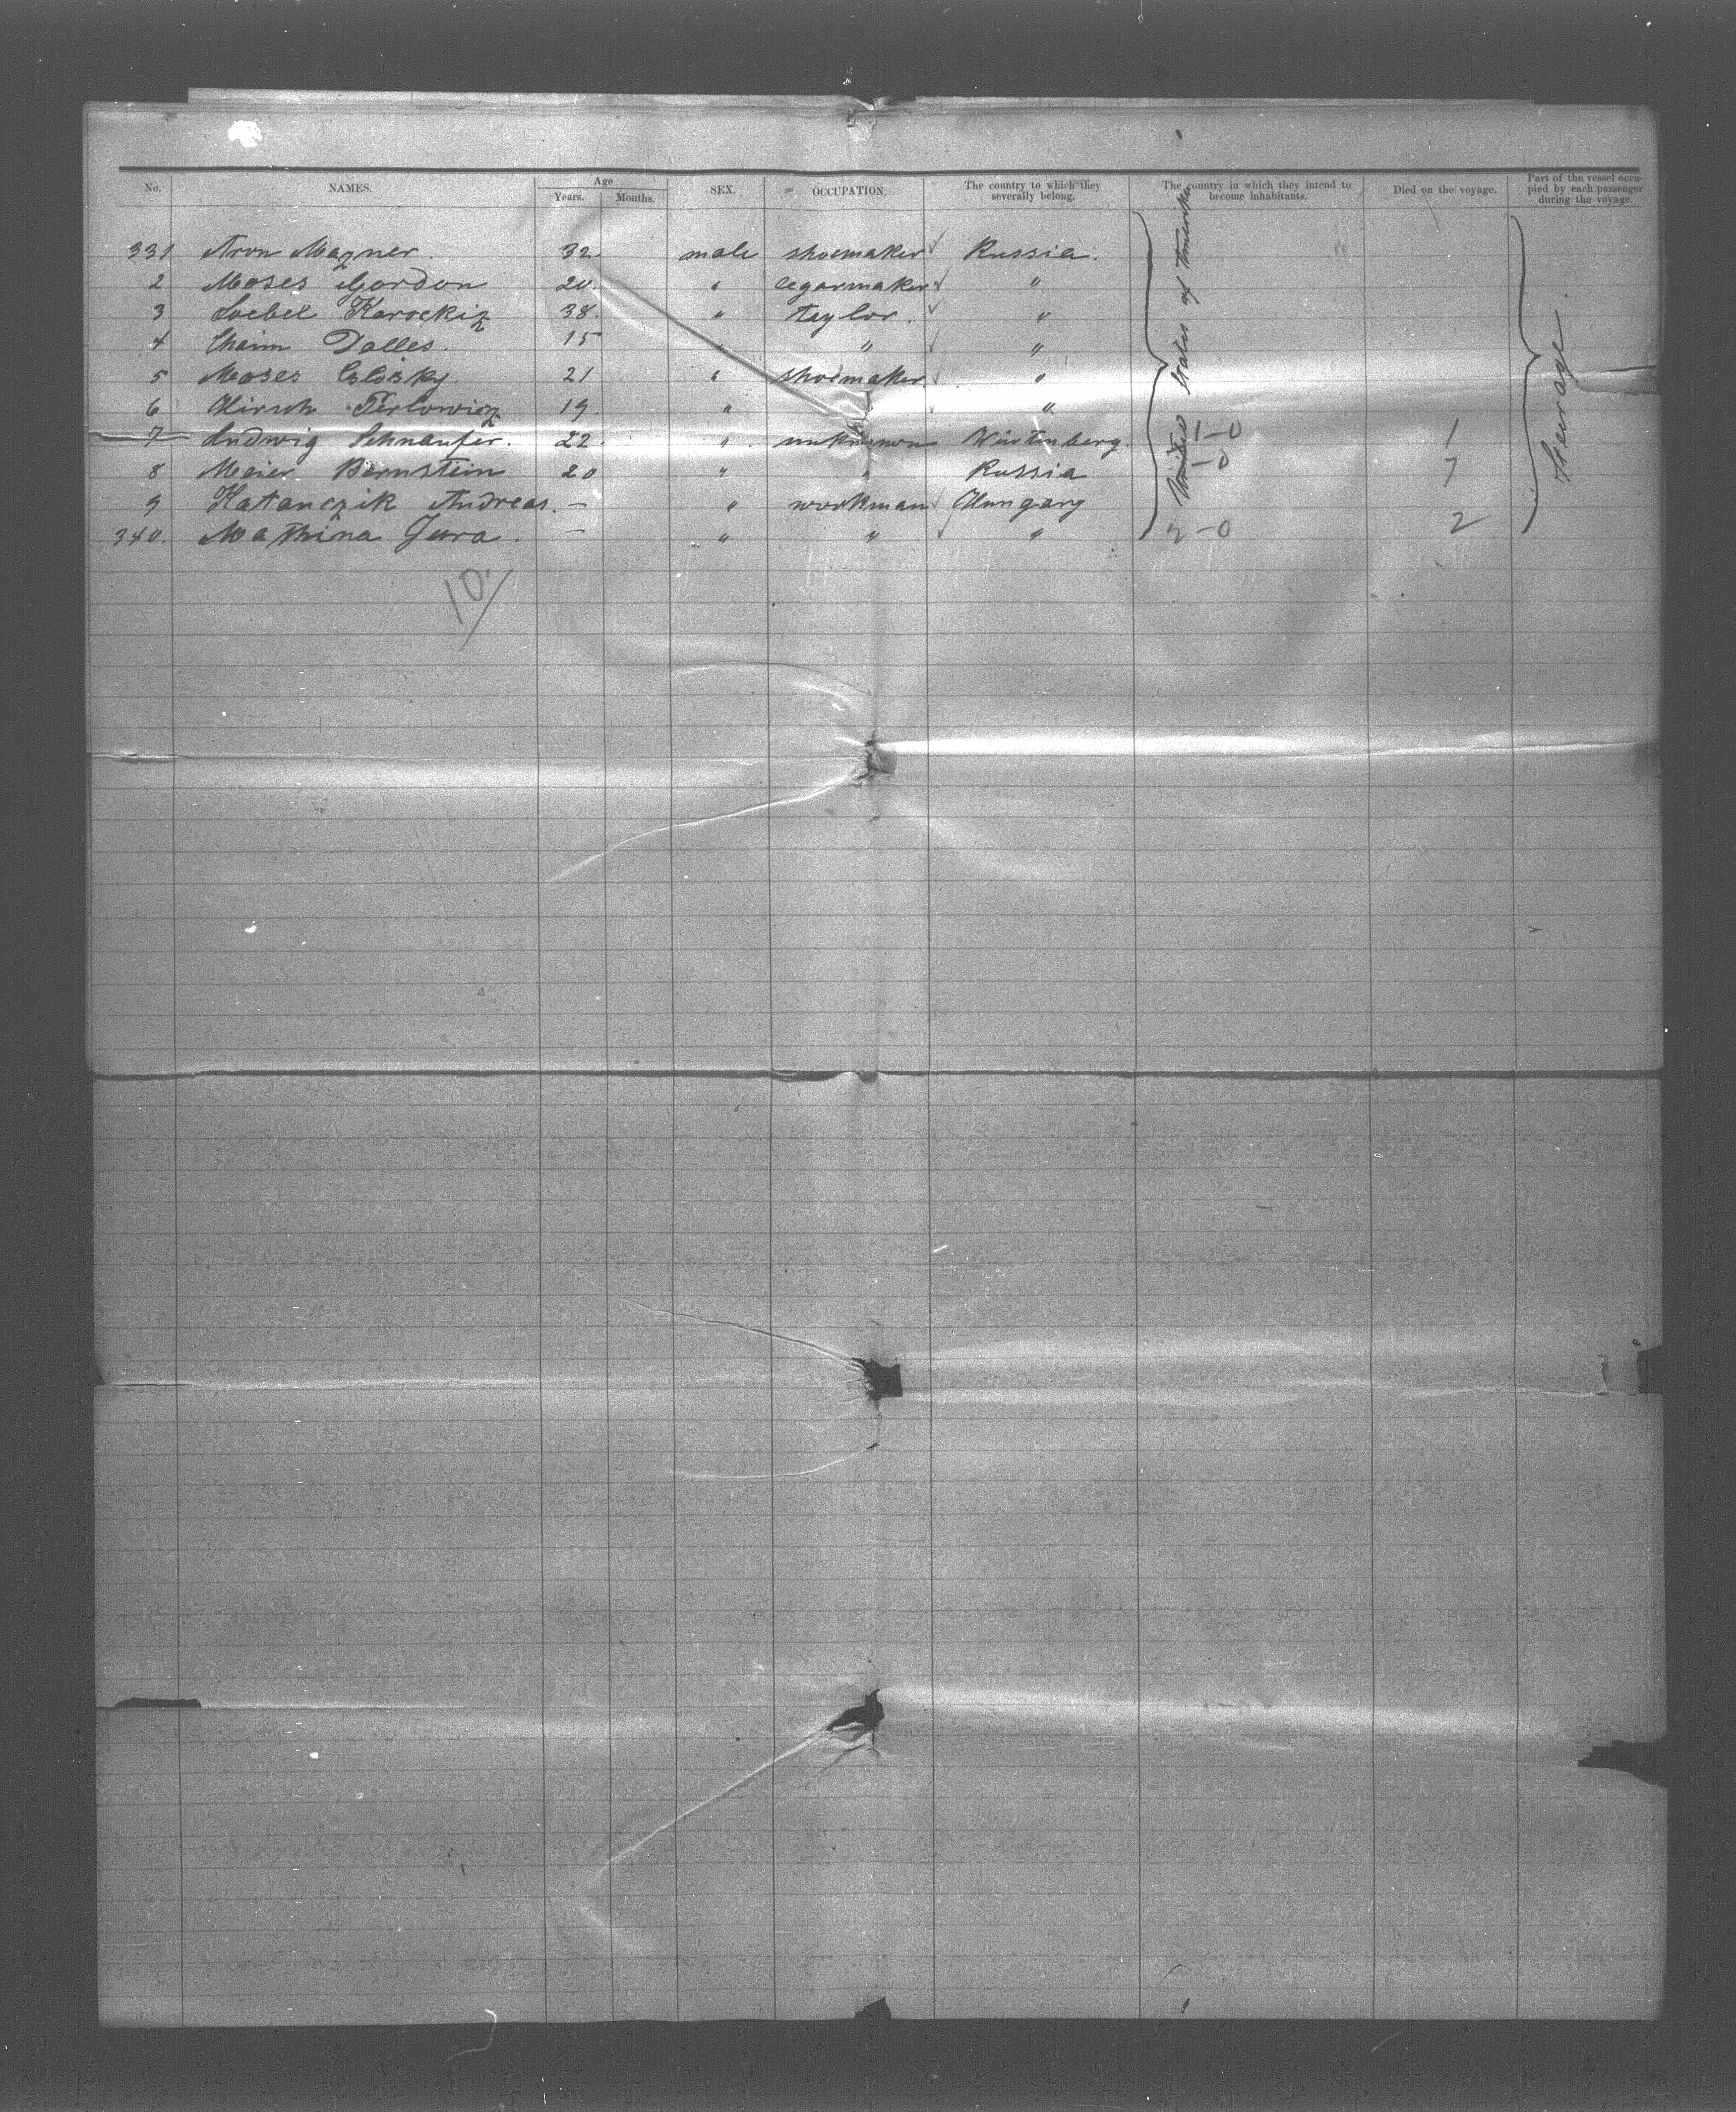 No. NAMES. Age Years. Months. SEX. OCCUPATION. The country to which they severally belong. The country in which they intend to become inhabitants. Died on the voyage. Part of the vessel occupied by each passenger during the voyage.
331 Aron Mazner. 32. male shoemaker Russia.
2 Moses Gordon 20. " cegarmaker "
3 Loebel Karockiz 38. " taylor. "
4 Chaim Dalles. 15 " " "
5 Moses 21 " shoemaker "
6 Hirsch Perlowicz 19. " "
7 Ludwig Schnaufer. 22. " unknown Würtenberg. 1-0 1
8 Meier Bernstein 20 " " Russia -0 1
9 Katanczik Andreas. - " workman Hungary
340. Mathina Jura. - " " " 2-0 2
United States of Amerika
Steerage.
10/